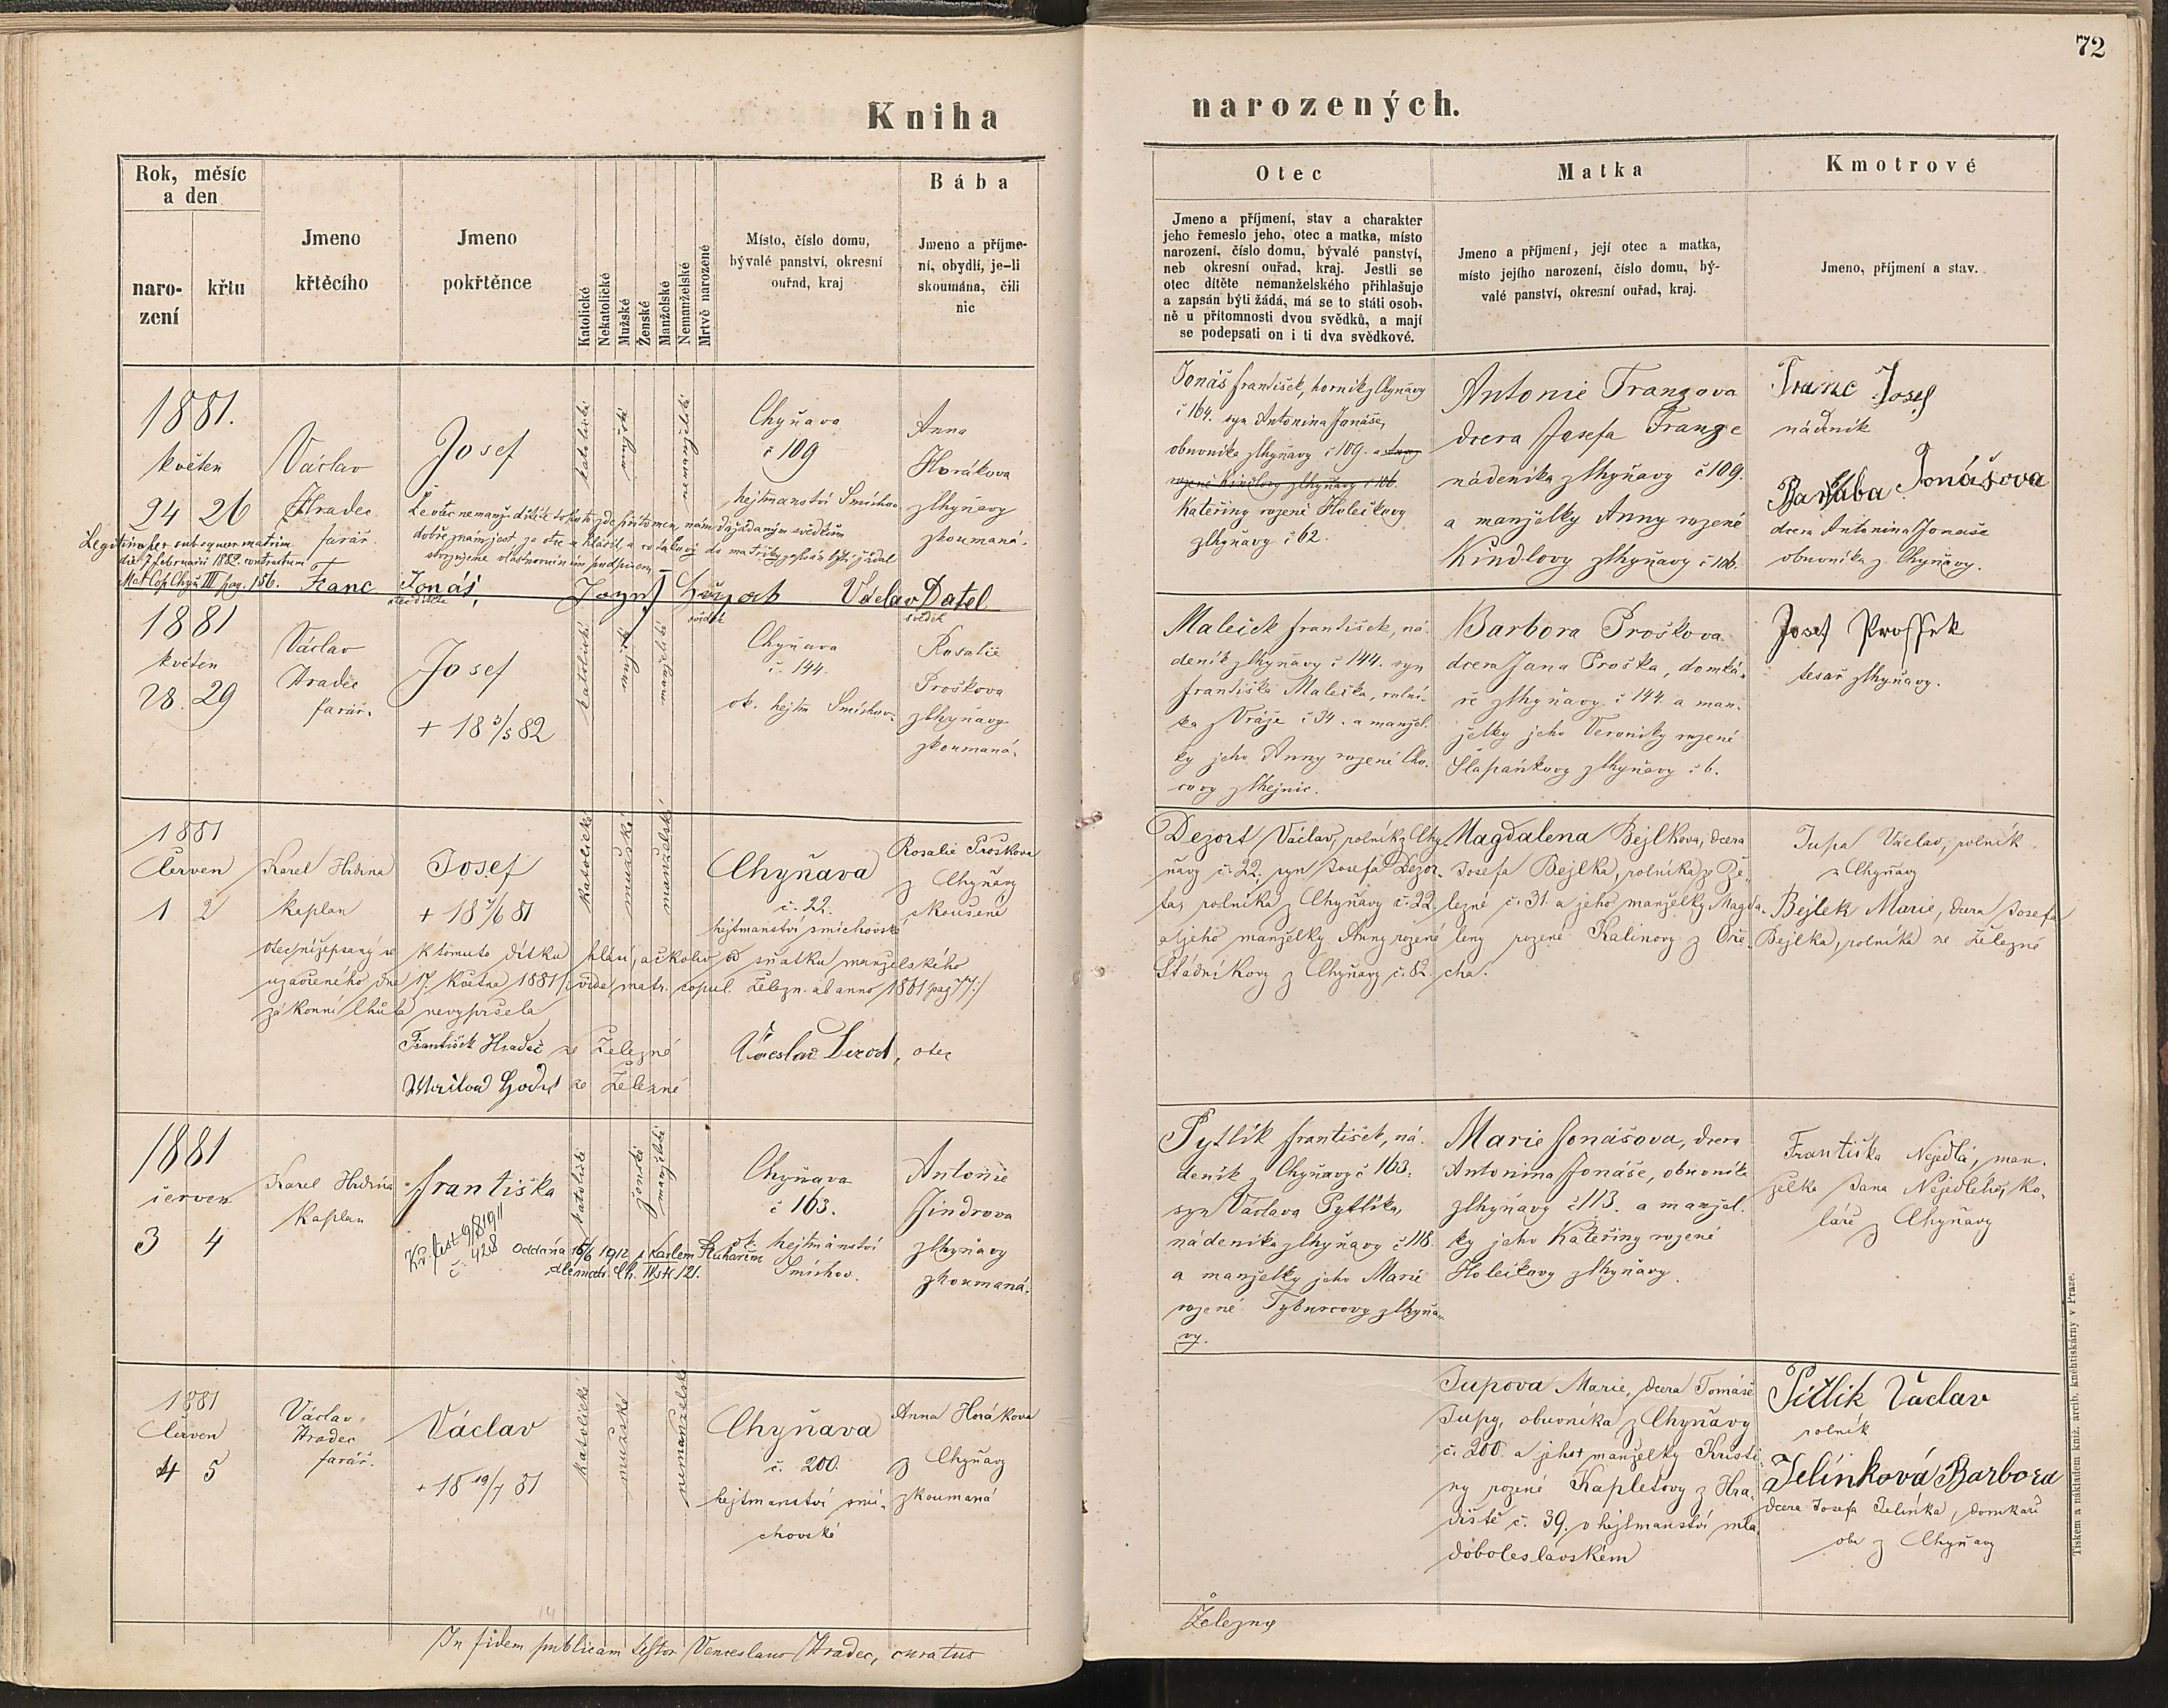 72
Kniha narozených.
Rok, měsíc
a den
naro-
zení
křtu
Jmeno
křtěcího
Jmeno
pokřtěnce
Katolické
Nekatolické
Mužské
Ženské
Manželské
Nemanželské
Mrtvě narozené
Místo, číslo domu,
bývalé panství, okresní
ouřad, kraj
Bába
Jmeno a příjme-
ní, obydlí, je-li
skoumána, čili
nic
Otec
Jmeno a příjmení, stav a charakter
jeho řemeslo jeho, otec a matka, místo
narození, číslo domu, bývalé panství,
neb okresní ouřad, kraj. Jestli se
otec dítěte nemanželského přihlašuje
a zapsán býti žádá, má se to státi osob-
ně u přítomnosti dvou svědků, a mají
se podepsati on i ti dva svědkové.
Matka
Jmeno a příjmení, její otec a matka,
místo jejího narození, číslo domu, bý-
valé panství, okresní ouřad, kraj.
Kmotrové
Jmeno, příjmení a stav.
1881.
květen
24 26
Václav
Hradec
farář.
Josef
katolické
mužské
nemanželské
Chyňava
č 109
hejtmanství Smíchov
Anna
Horákova
z Chyňavy
zkoumaná.
Legitima per subsequens matrim.
die 7 februarii 1882 contractum
Mat Cop Chyň III pag. 156.
Franc Jonáš,
otec dítěte
svědek
Václav Datel
svědek
Jonáš František, horník z Chyňavy
č 164. syn Antonína Jonáše,
obuvníka z Chyňavy č 109. a Anny
rozené Kindlovy z Chyňavy č 106.
Kateřiny rozené Holečkovy
z Chyňavy č 62.
Antonie Franzova
dcera Josefa Franze
nádeníka z Chyňavy č 109.
a manželky Anny rozené
Kindlovy z Chyňavy č 106.
Franc Josef
nádeník
Barbaba Jonášova
dcera Antonína Jonáše
obuvníka z Chyňavy.
1881
květen
28. 29
Václav
Hradec
farář.
Josef
+ 18 3/5 82
katolické
mužské
manželské
Chyňava
č. 144.
ok. hejtm Smíchov.
Rosalie
Proškova
z Chyňavy
zkoumaná.
Maleček František, ná-
deník z Chyňavy č 144. syn
Františka Malečka, rolní-
ka z Vráže č 34. a manžel-
ky jeho Anny rozené Cho-
covy
Barbora Proškova
dcera Jana Proška, domká-
ře z Chyňavy č 144. a man-
želky jeho Veroniky rozené
Štěpánkovy z Chyňavy č 6.
Josef Prossek
tesař z Chyňavy.
1881
Červen
1 2
Karel Hrdina
kaplan
Josef
+ 18 7/6 81
katolické
mužské
manželské
Chyňava
č. 22.
hejtmanství smíchovské
Rosalie Proškova
z Chyňavy
skoušená
otec nížepsaný se k tomuto dítku hlásí, ačkoliv od sňatku manželského
uzavřeného dne 17. května 1881 /: vide matr. copul. Železn. ab anno 1881 pag 77:/
zákonní lhůta nevypršela
František Hradec ze Železné
ze Železné
otec
Dezort Václav, rolník z Chy-
ňavy č. 22, syn Josefa Dezor-
ta, rolníka z Chyňavy č. 22
a jeho manželky Anny rozené
Sládníkovy z Chyňavy č. 82.
Magdalena Bejlkova, dcera
Josefa Bejlka, rolníka ze Že-
lezné č. 31 a jeho manželky Magda-
leny rozené Kalinovy z Oře-
cha.
Tupa Václav, rolník
z Chyňavy
Bejlek Marie, dcera Josefa
Bejlka, rolníka ze Železné
1881
červen
3 4
Karel Hrdina
kaplan
Františka
Kř. list 9/8 1911
č. 428
Oddána 16/6 1912 s Karlem
katolické
ženské
manželské
Chyňava
č 163.
ok. hejtmanství
Smíchov.
Antonie
Jindrova
z Chyňavy
zkoumaná.
Pytlík František, ná-
deník z Chyňavy č 163.
syn Václava Pytlíka,
nádeníka z Chyňavy č 118
a manželky jeho Marie
rozené Tyburcovy z Chyňa-
vy.
Marie Jonášova, dcera
Antonína Jonáše, obuvníka
z Chyňavy č 113. a manžel-
ky jeho Kateřiny rozené
Holečkovy z Chyňavy.
Františka Nejedlá, man-
želka Jana Nejedlého, ko-
láře z Chyňavy
1881
Červen
4 5
Václav
Hradec
farář.
Václav
+ 18 19/7 81
katolické
mužské
nemanželské
Chyňava
č. 200.
hejtmanství smí-
chovské
Anna Horákova
z Chyňavy
zkoumaná
Tupova Marie, dcera Tomáše
Tupy, obuvníka z Chyňavy
č. 200 a jeho manželky Kristi-
ny rozené Kapletovy z Hra-
diště č. 39. v hejtmanství mla-
doboleslavském
Pitlik Václav
rolník
Jelínková Barbora
dcera Josefa Jelínka, domkař
oba z Chyňavy
In fidem publicam testor Venceslaus Hradec, curatus
Železny
Tiskem a nákladem kníž. arcib. kněhtiskárny v Praze.